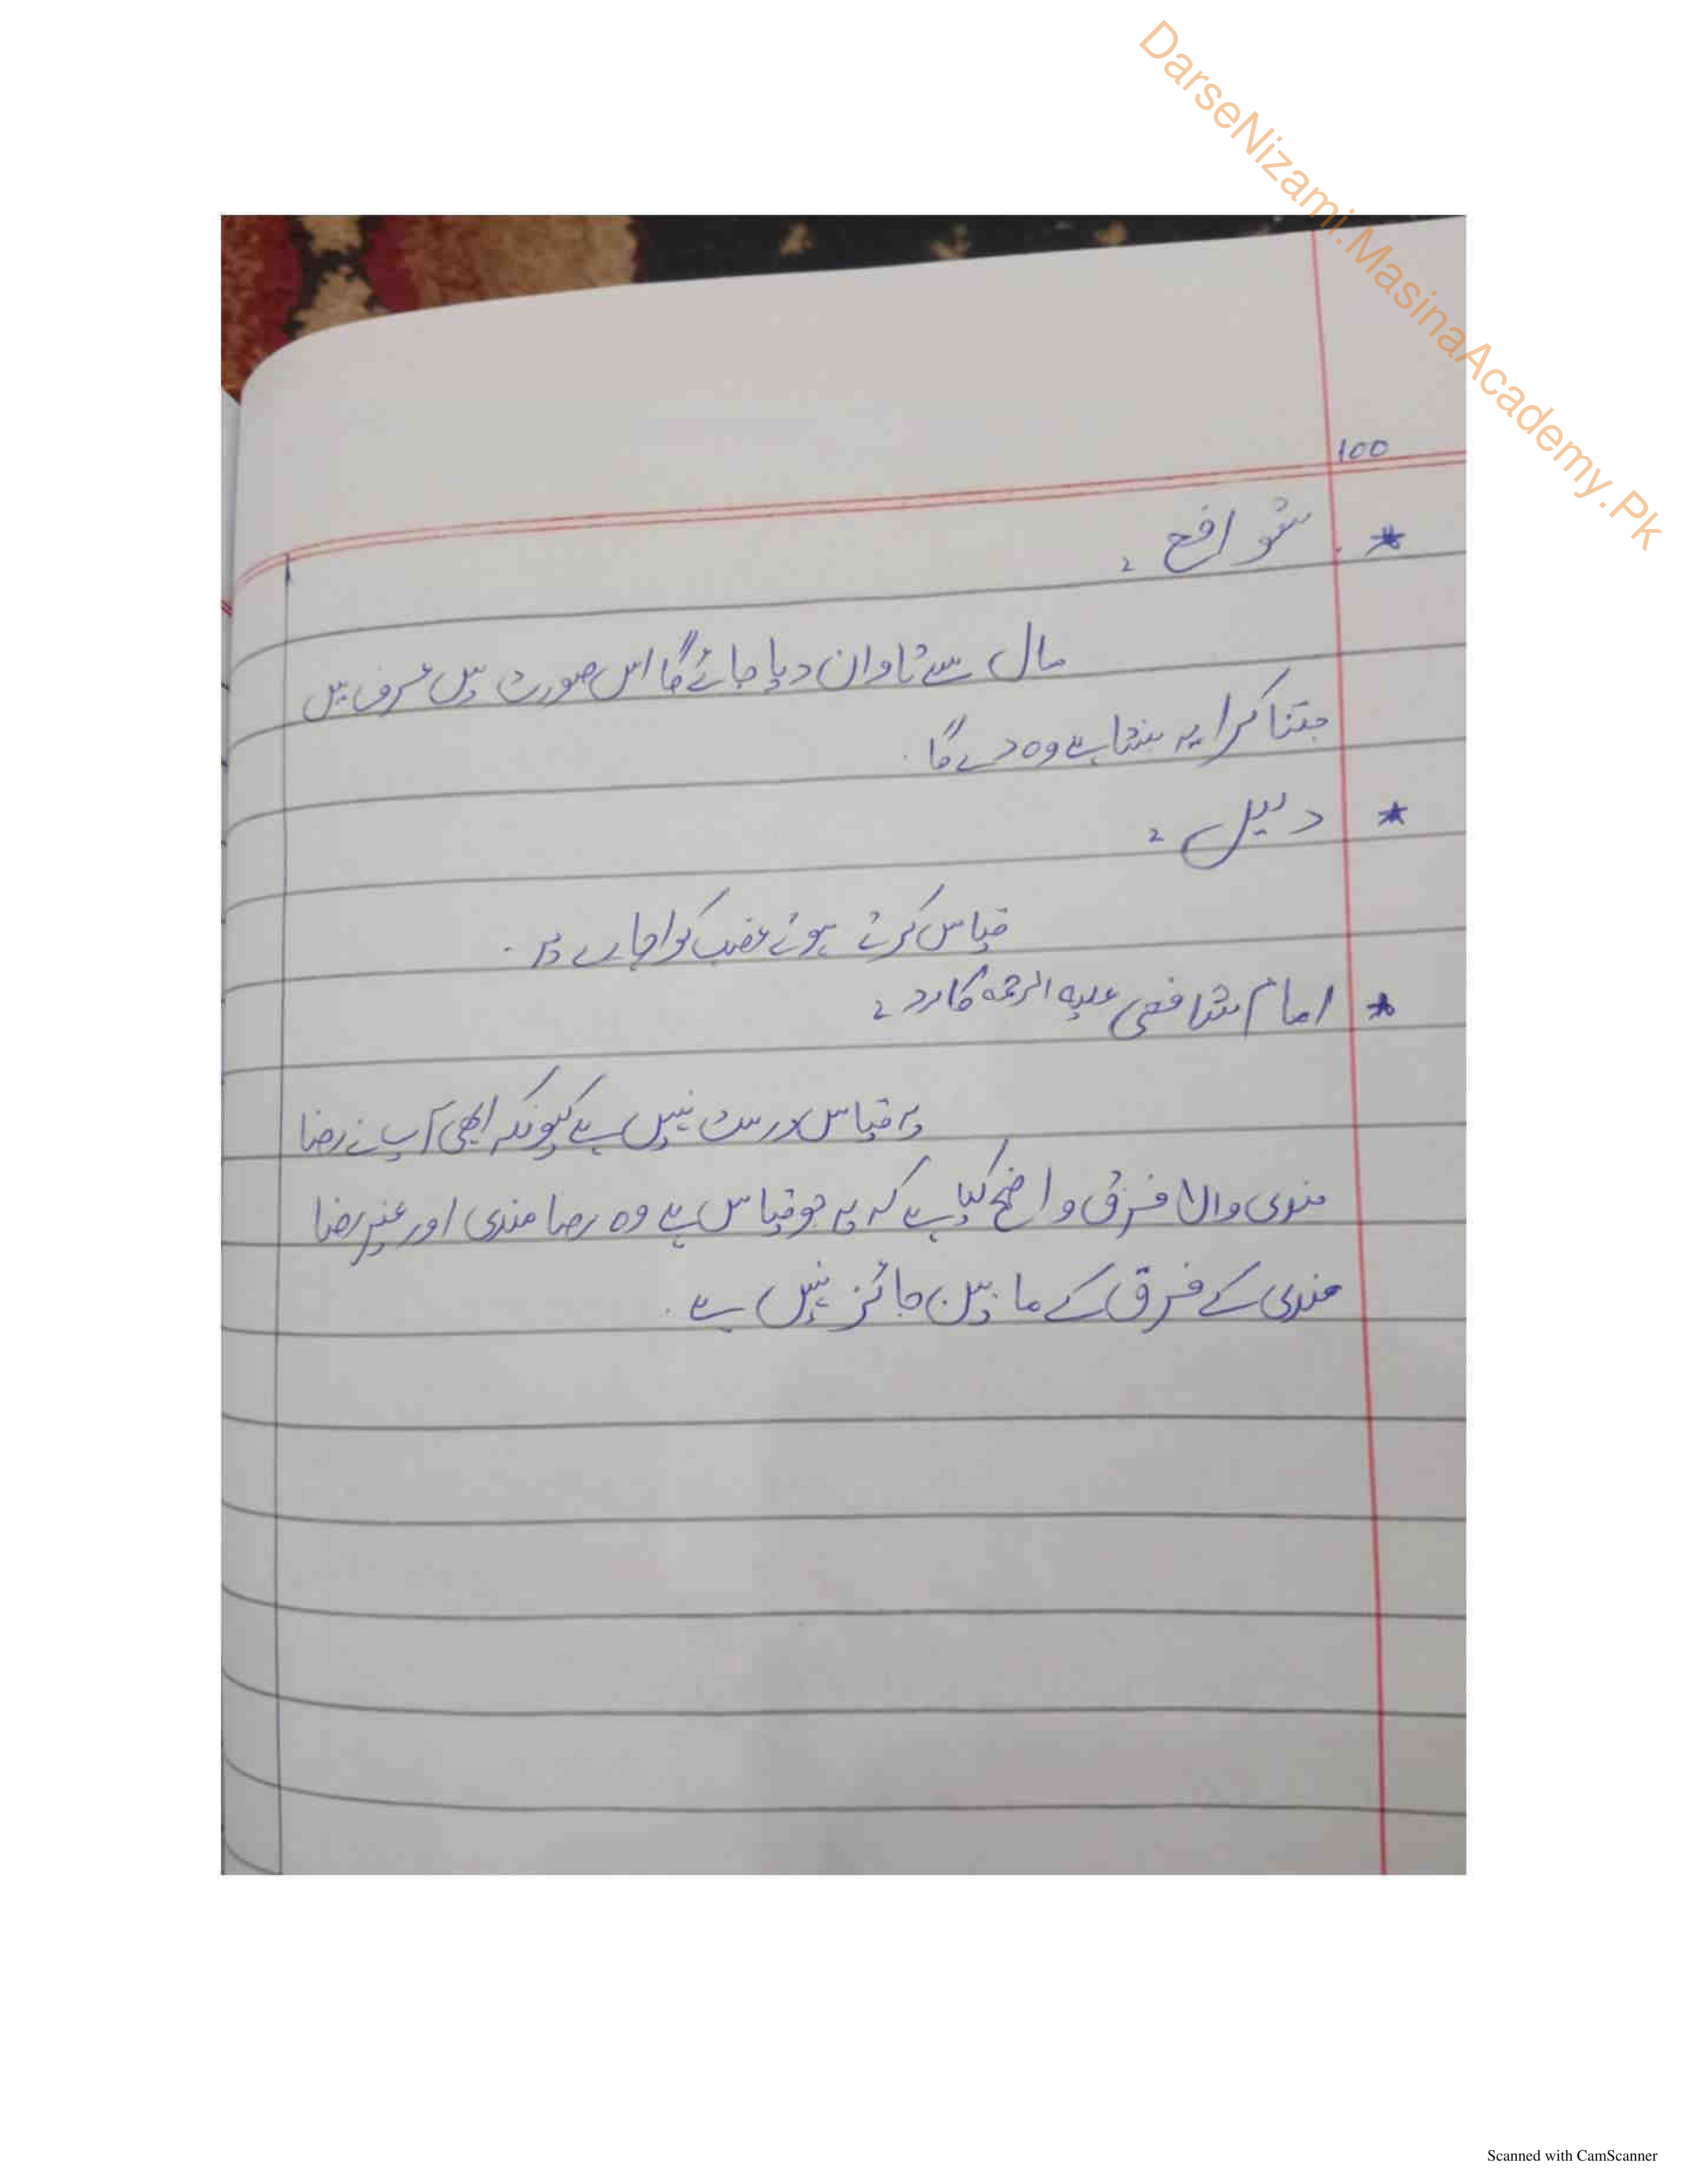 DarseNizami.MasinaAcademy.Pk
100
* شوافع :
مال سے تاوان دیا جائے گا اس صورت میں عرف میں
جتنا کرایہ بنتا ہے وہ دے گا.
* دلیل :
قیاس کرتے ہوئے غصب کو اجارے پر.
* امام شافعی علیہ الرحمہ کا رد :
یہ قیاس درست نہیں ہے کیونکہ ابھی آپ نے رضا
مندی والا فرق واضح کیا ہے کہ یہ جو قیاس ہے وہ رضا مندی اور غیر رضا
مندی کے فرق کے مابین جائز نہیں ہے.
Scanned with CamScanner